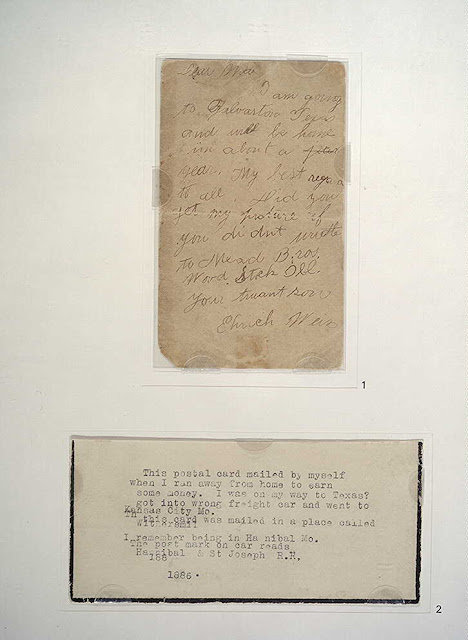 Dear Ma
I am going
to Galvaston Texs
and will be home
in about a
year. My best regra
to all. Did you
get my picture if
you didnt write
to Mead Bros.
Wood Stck Ill.
Your truant son
Ehrich Weiss
1
This postal card mailed by myself
when I ran away from home to earn
some money. I was on my way to Texas?
got into wrong freight car and went to
Kansas City Mo.
this card was mailed in a place called
I remember being in Ha nibal Mo.
The post mark on car reads
Ha nibal & St Joseph R.R.
188
1886.
2